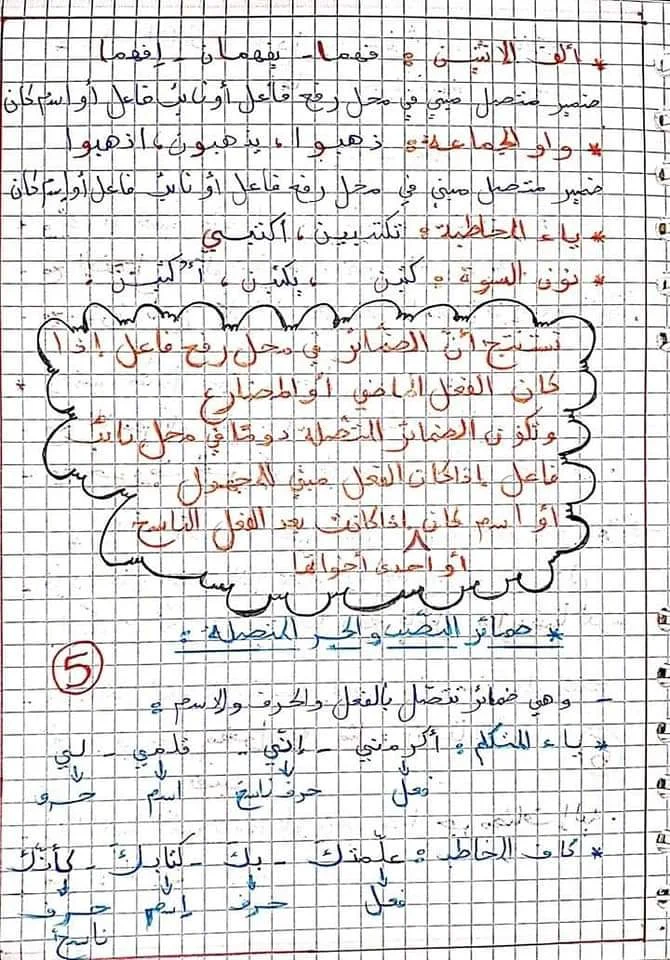 * ألف الاثنين : فهما - يفهمان - إفهما
ضمير متصل مبني في محل رفع فاعل أو نائب فاعل أو اسم كان
* واو الجماعة : ذهبوا ، يذهبون ، اذهبوا
ضمير متصل مبني في محل رفع فاعل أو نائب فاعل أو إسم كان
* ياء المخاطبة : تكتبين ، اكتبي
* نون النسوة : كتبن ، يكتبن ، أكتبن :
نستنتج أنّ الضمائر في محل رفع فاعل إذا
كان الفعل الماضي أو المضارع
وتكون الضمائر المتصلة دومًا في محل نائب
فاعل إذا كان الفعل مبني للمجهول
أو اسم كان إذا كانت بعد الفعل الناسخ
أو احدى أخواتها
* ضمائر النصب والجر المتصلة :
5
- وهي ضمائر تتصل بالفعل والحرف والاسم :
* ياء المتكلم : أكرمني - إنّي - قلمي - لي
فعل حرف ناسخ اسم حرف
* كاف الخاطب : علّمتك - بك - كتابك - كأنّك
فعل حرف إسم حرف
ناسخ